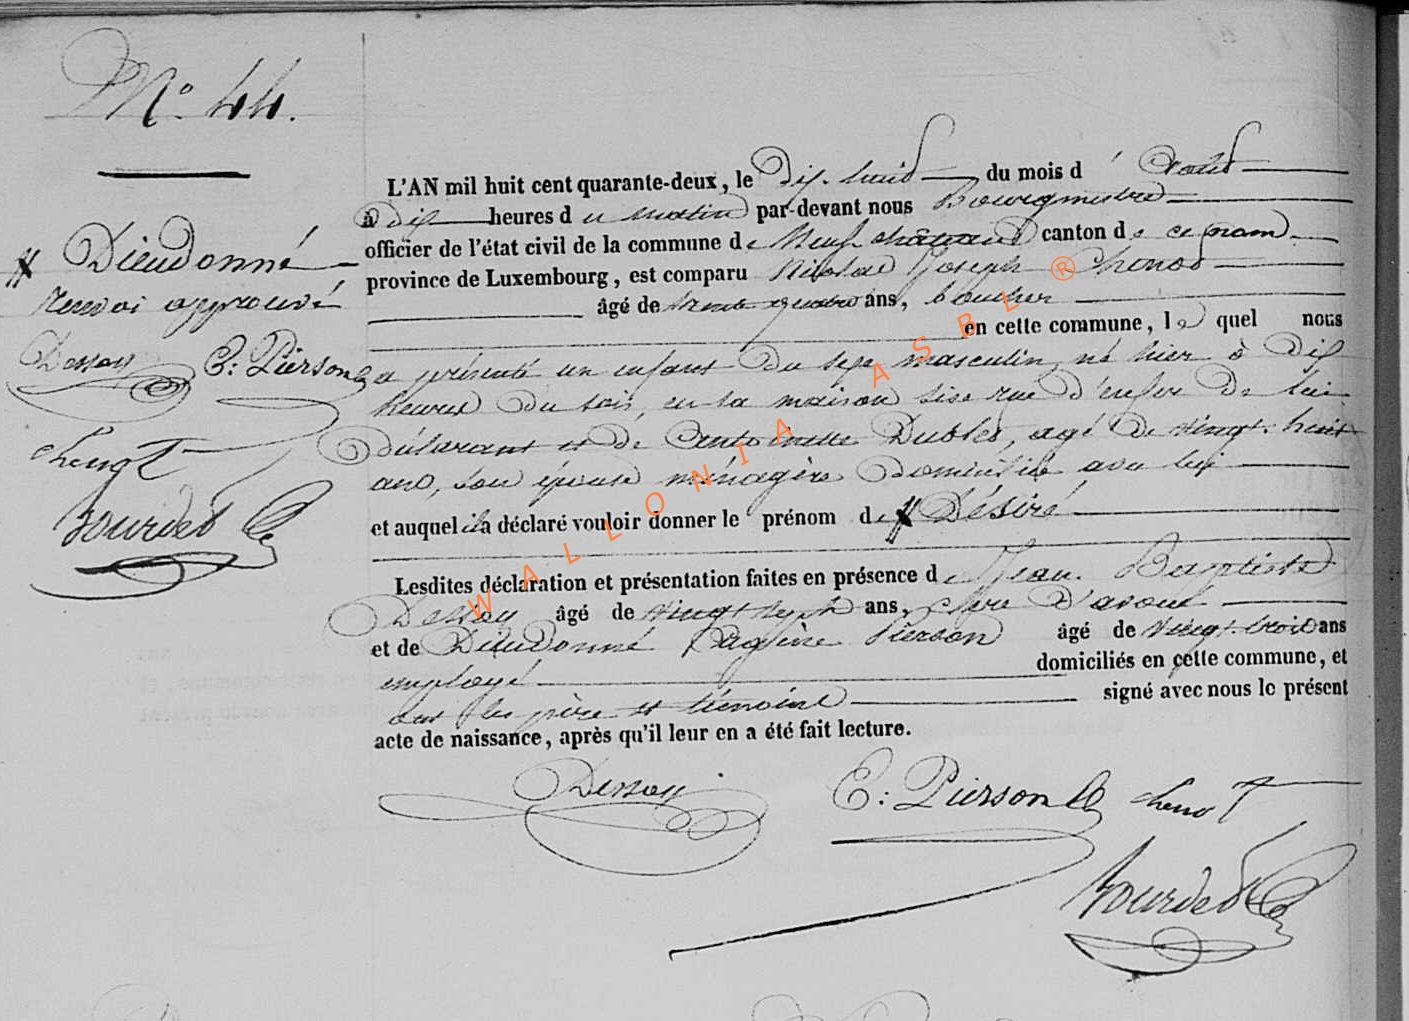 N° 44.
L'AN mil huit cent quarante-deux, le Dix-huit du mois d'août
à Dix heures du matin par-devant nous Bourgmestre
officier de l'état civil de la commune de Neufchâteau canton de ce nom
province de Luxembourg, est comparu Nicolas Joseph Chenot
âgé de trente quatre ans, boucher
en cette commune, lequel nous
a présenté un enfant du sexe masculin, né hier à Dix
heures du soir, en sa maison sise rue d'enfer De lui
Déclarant et de Antoinette Dublet, agé De vingt-huit
ans, son épouse ménagère Domiciliée avec lui
et auquel il a déclaré vouloir donner le prénom de # Désiré
Lesdites déclaration et présentation faites en présence de Jean Baptiste
Dessoy âgé de vingt sept ans, clerc D'avoué
et de Dieudonné Eugène Pierson âgé de vingt-trois ans
employé domiciliés en cette commune, et
ont les père et témoins signé avec nous le présent
acte de naissance, après qu'il leur en a été fait lecture.
# Dieudonné
renvoi approuvé
Dessoy E: Pierson
chenot
Bourdet
Dessoy E: Pierson chenot
Bourdet
WALLONIA ASBL ®